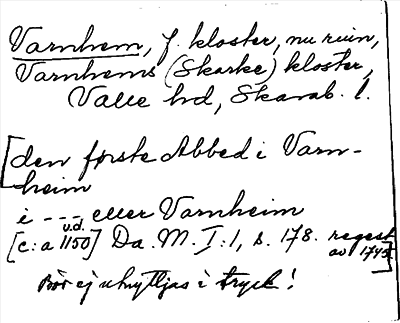 Varnhem, f. kloster, nu ruin,
Varnhems (Skarke) kloster,
Valle hd, Skarab. l.
[den første Abbed i Varn-
heim
i --- eller Varnheim
[c:a 1150] u.d. Da. M. I:1, s. 178. regest av 1745]
Bör ej utnyttjas i tryck!